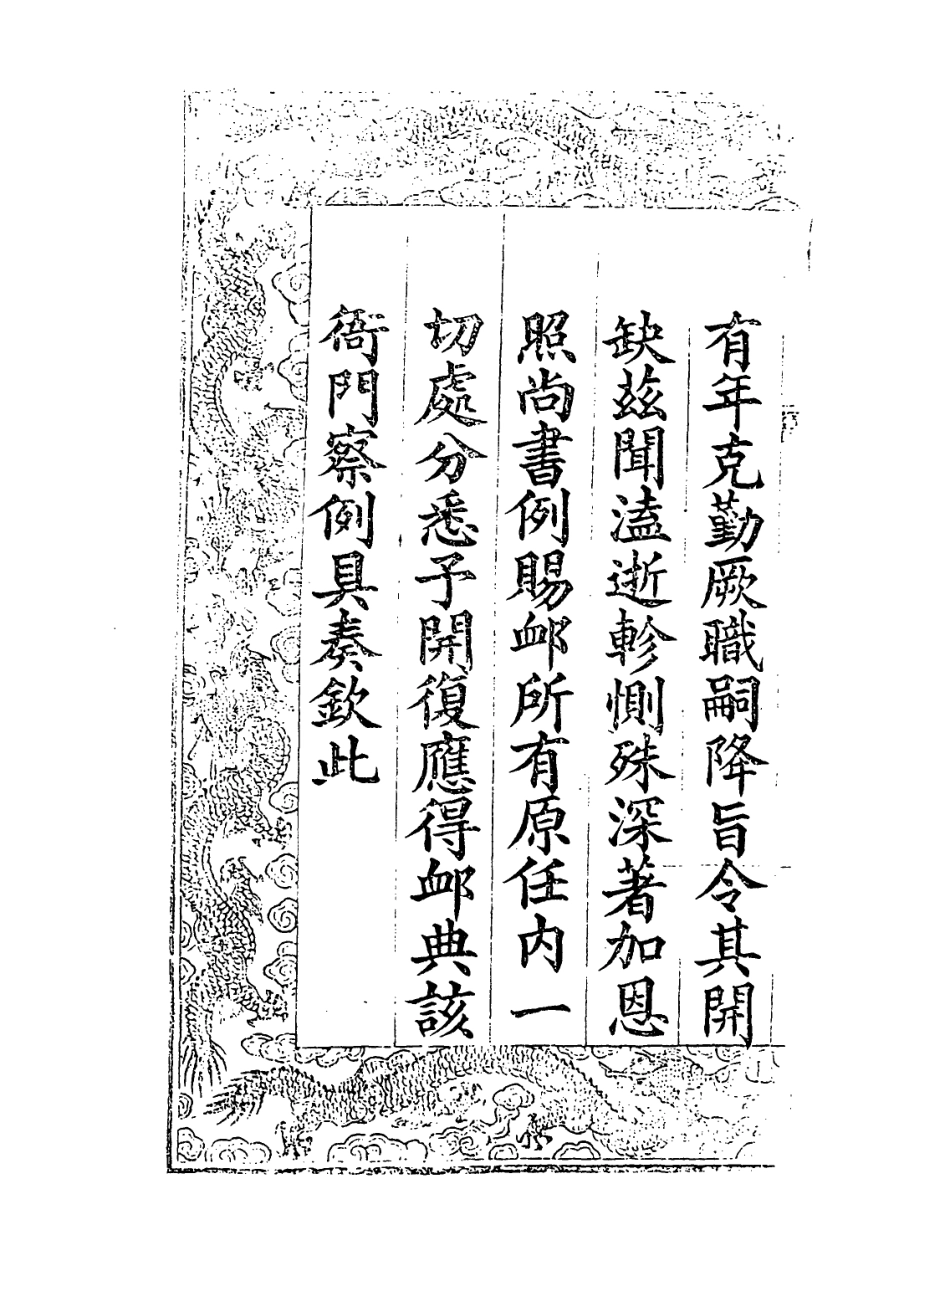 有年克勤厥職嗣降旨令其開
缺茲聞溘逝軫惻殊深著加恩
照尚書例賜卹所有原任內一
切處分悉予開復應得卹典該
衙門察例具奏欽此